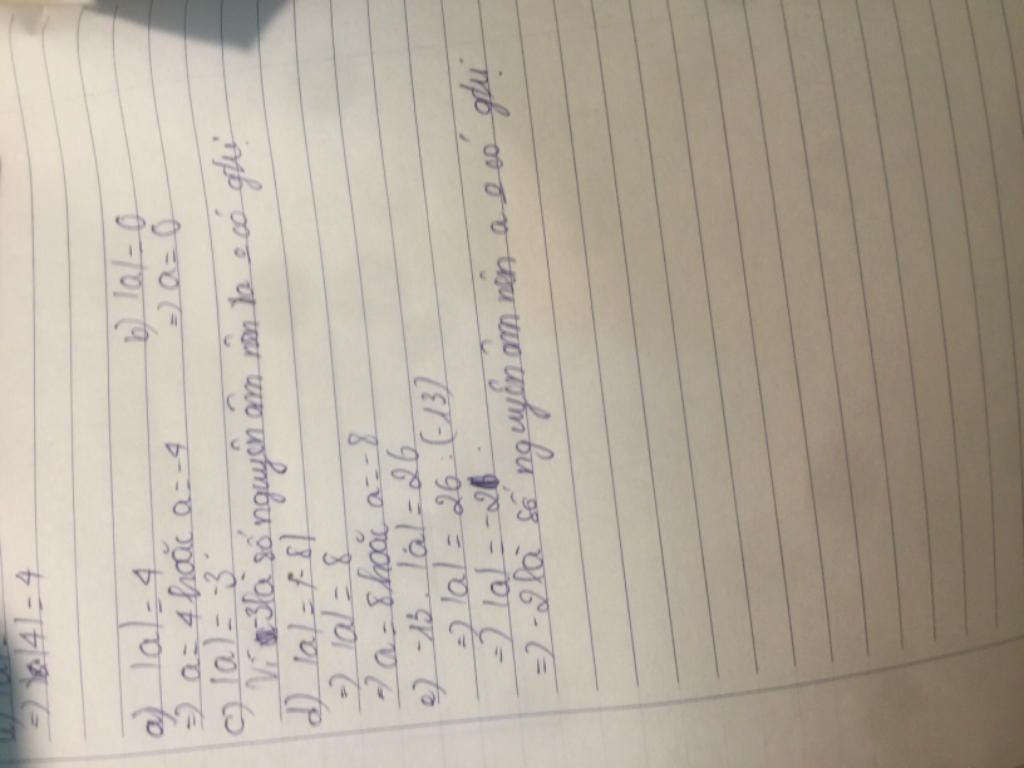 => |4| = 4
a) |a| = 4 b) |a| = 0
=> a = 4 hoặc a = -4 => a = 0
c) |a| = -3
Vì -3 là số nguyên âm nên a có ghi.
d) |a| = |-8|
=> |a| = 8
=> a = 8 hoặc a = -8
e) -13 . |a| = 26
=> |a| = 26 : (-13)
=> |a| = -2
=> -2 là số nguyên âm nên a có ghi.